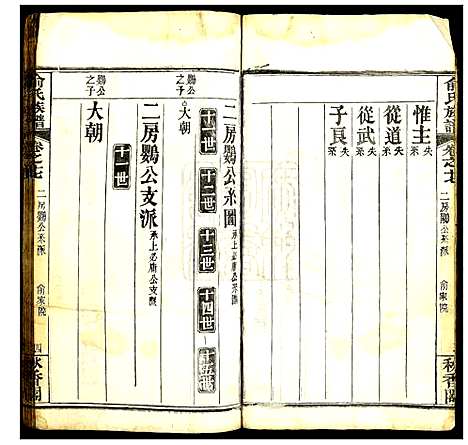 俞氏族譜
卷之七
二房鸚公系派
俞家院
秋香園
惟主失
從道失
從武失
子良失
二房鸚公系圖承上必庸公支派
十一世 十二世 十三世 十四世 十五世
鸚公之子
大朝
二房鸚公支派承上必庸公支派
十一世
鸚公之子
大朝
俞氏族譜
卷之七
二房鸚公系派
俞家院
四
秋香園